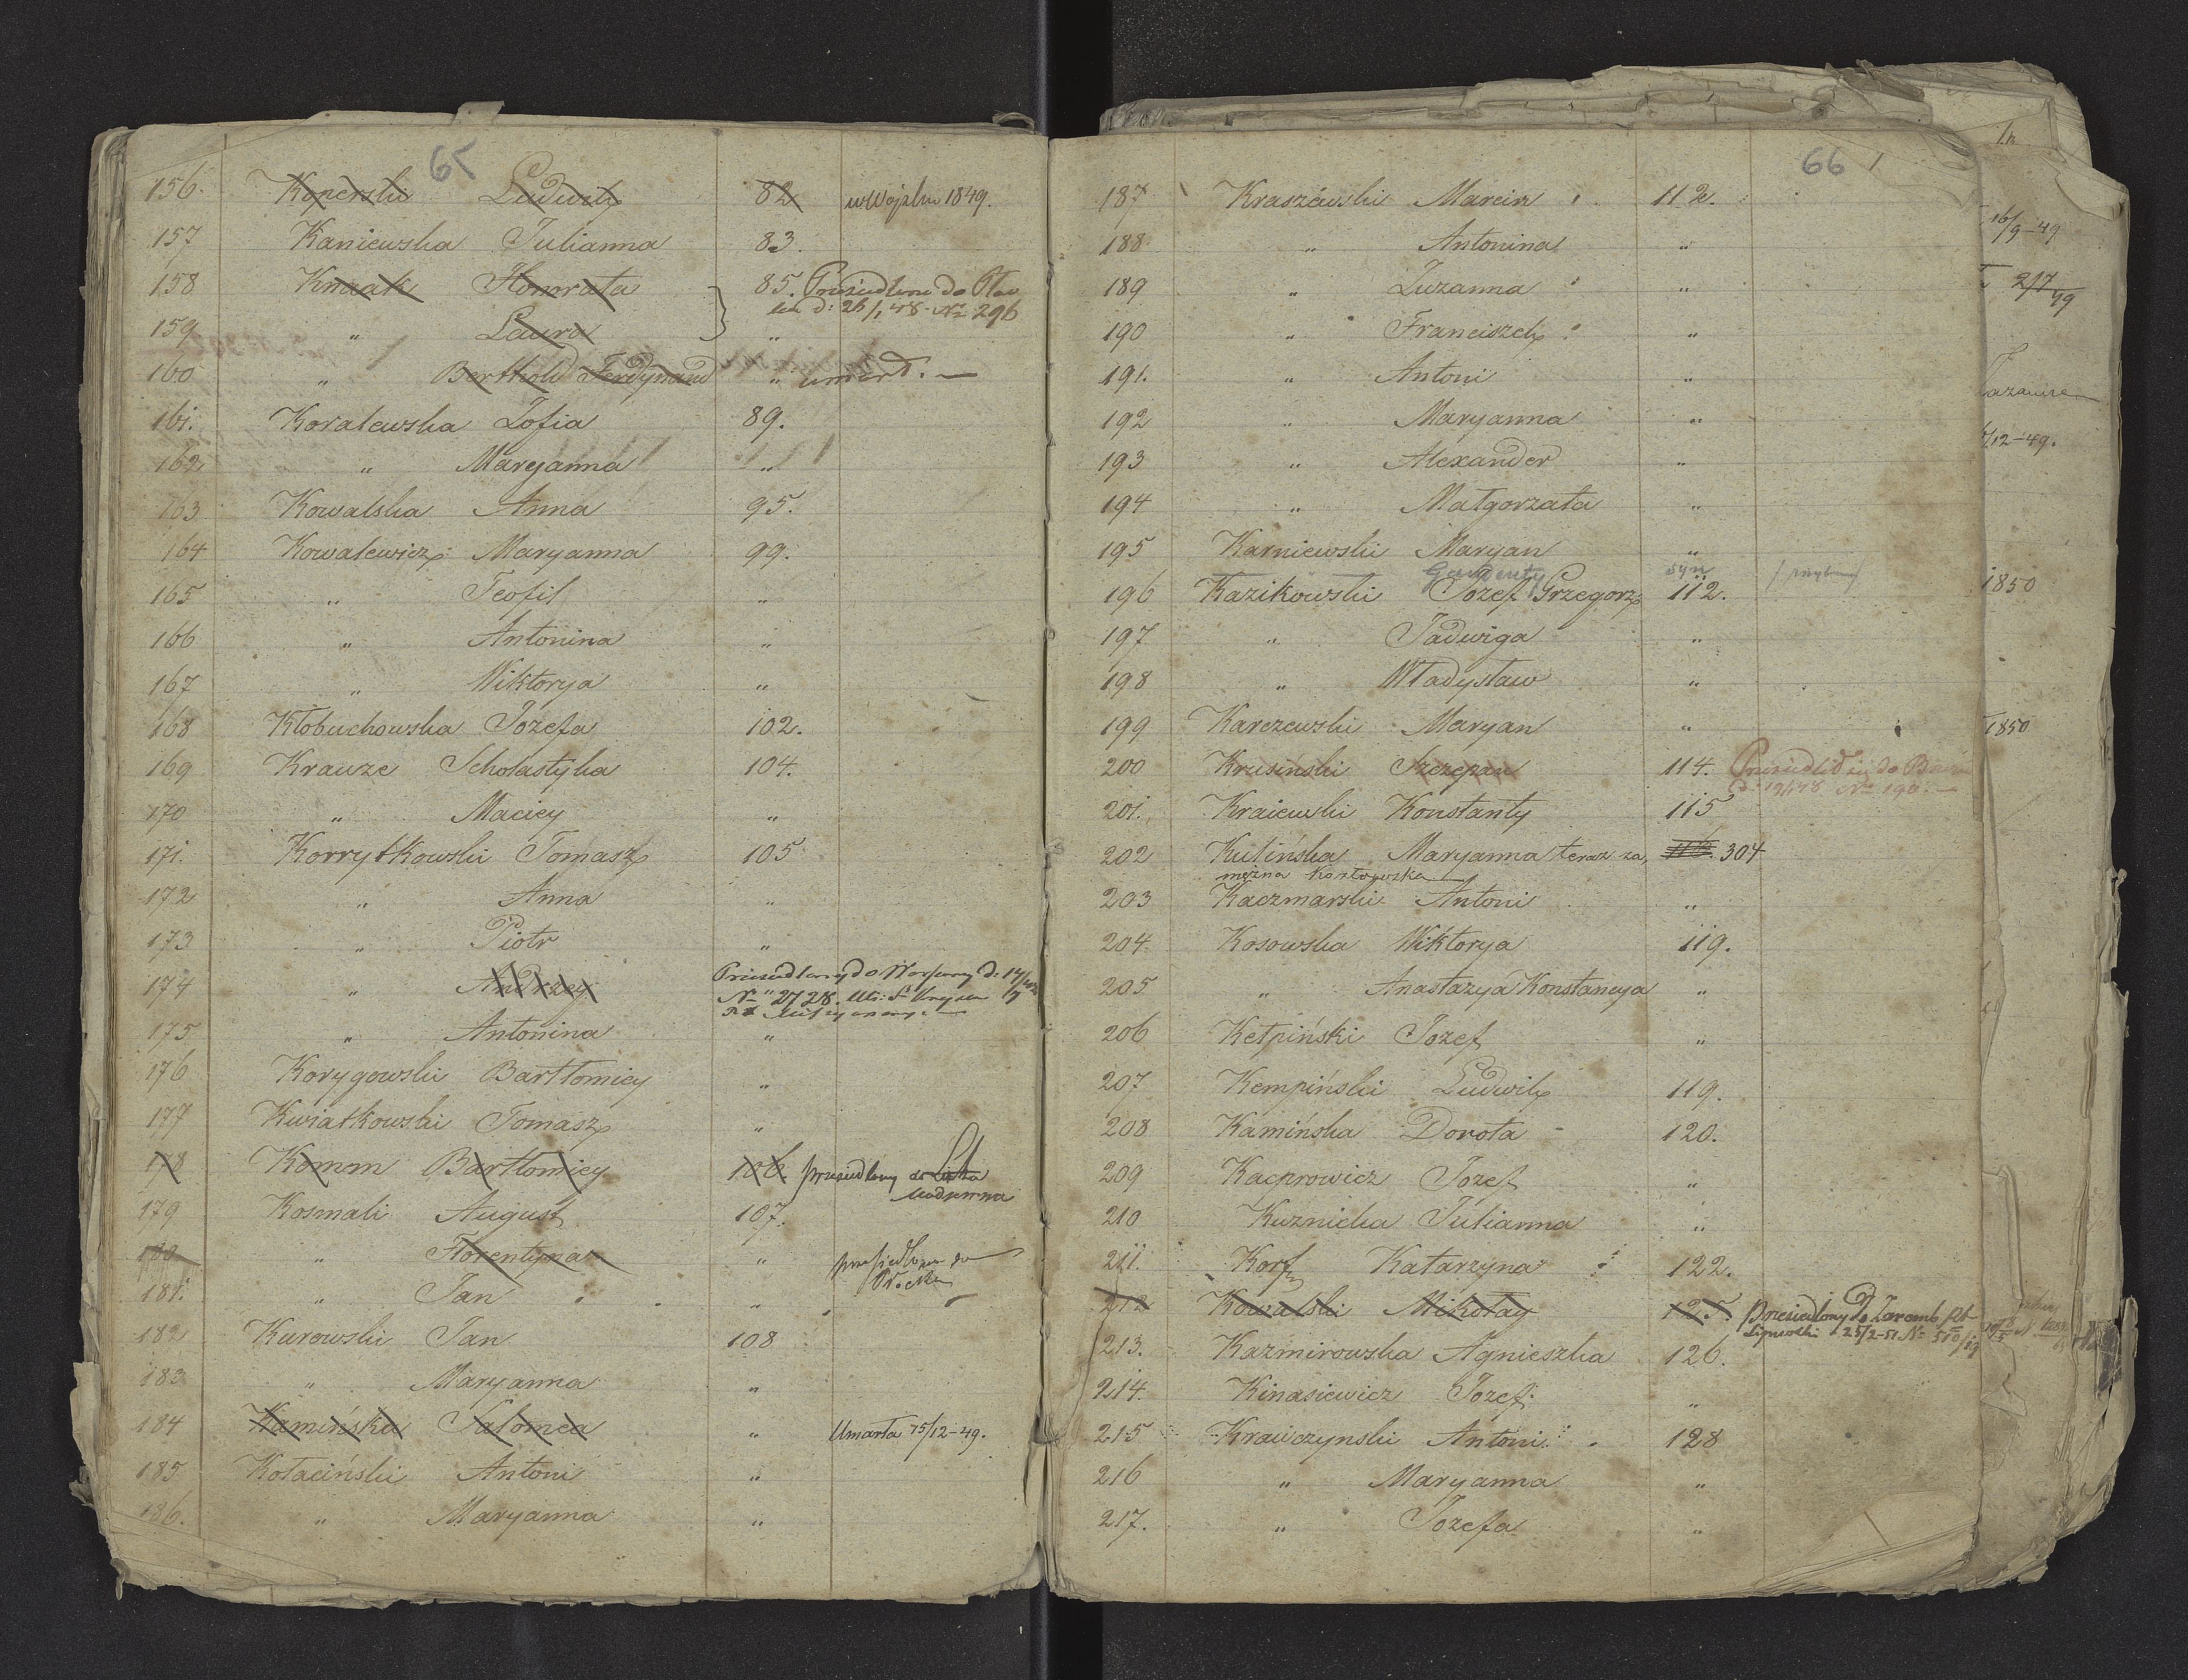 65
156. Koperski Ludwik 82 w Wojsku 1849.
157 Kaniewska Julianna 83.
158 Knaak Honorata 85. Przesiedlona do
d: 26/1 48. No 296
159 " Laura "
160 " Berthold Ferdynand " umarł. —
161. Koralewska Zofia 89.
162 " Maryanna "
163 Kowalska Anna 95.
164 Kowalewicz Maryanna 99.
165 " Teofil "
166 " Antonina "
167 " Wiktorya "
168 Kłobuchowska Jozefa 102.
169 Krauze Scholastyka 104.
170 " Maciey "
171. Korrytkowski Tomasz 105
172 " Anna "
173 " Piotr "
174 " Andrzey Przesiedlony do Warszawy d: 14/
No 2728.
175 " Antonina "
176 Korygowski Bartłomiey "
177 Kwiatkowski Tomasz "
178 Koman Bartłomiey 106 przesiedlony do
179 Kosmali August 107.
180 " Florentyna " przesiedlona do
Płocka
181. " Jan "
182 Kurowski Jan 108
183 " Maryanna "
184 Kamińska Salomea " Umarła 15/12-49.
185 Kołaciński Antoni "
186. " Maryanna "
66
187 Kraszéwski Marcin 112.
188 " Antonina "
189 " Zuzanna "
190 " Franciszek "
191. " Antoni "
192 " Maryanna "
193 " Alexander "
194 " Małgorzata "
195 Karniewski Maryan "
Gaudenty syn
196 Kazikowski Jozef Grzegorz 112.
197 " Jadwiga "
198 " Władysław "
199 Karczewski Maryan "
200 Krusinski Szczepan 114. Przesiedlił się do
No 190. —
201. Kraiewski Konstanty 115
202 Kulińska Maryanna teraz za, 116. 304
mężna Kozłowska
203 Kaczmarski Antoni "
204 Kosowska Wiktorya 119.
205 " Anastazya Konstancya "
206 Kełpiński Jozef "
207 Kempiński Ludwik 119.
208 Kamińska Dorota 120.
209 Kacprowicz Jozef "
210 Kuznicka Julianna "
211. Korf Katarzyna 122.
212 Kowalski Mikołay 125. Przesiedlony do Zaremb
Lipnoski d 25/2-51 No 510/
213. Kazmirowska Agnieszka 126.
214. Kinasiewicz Jozef "
215 Krawczynski Antoni 128
216 " Maryanna "
217. " Jozefa "
16/9-49
2/7 49
12-49.
1850
1850